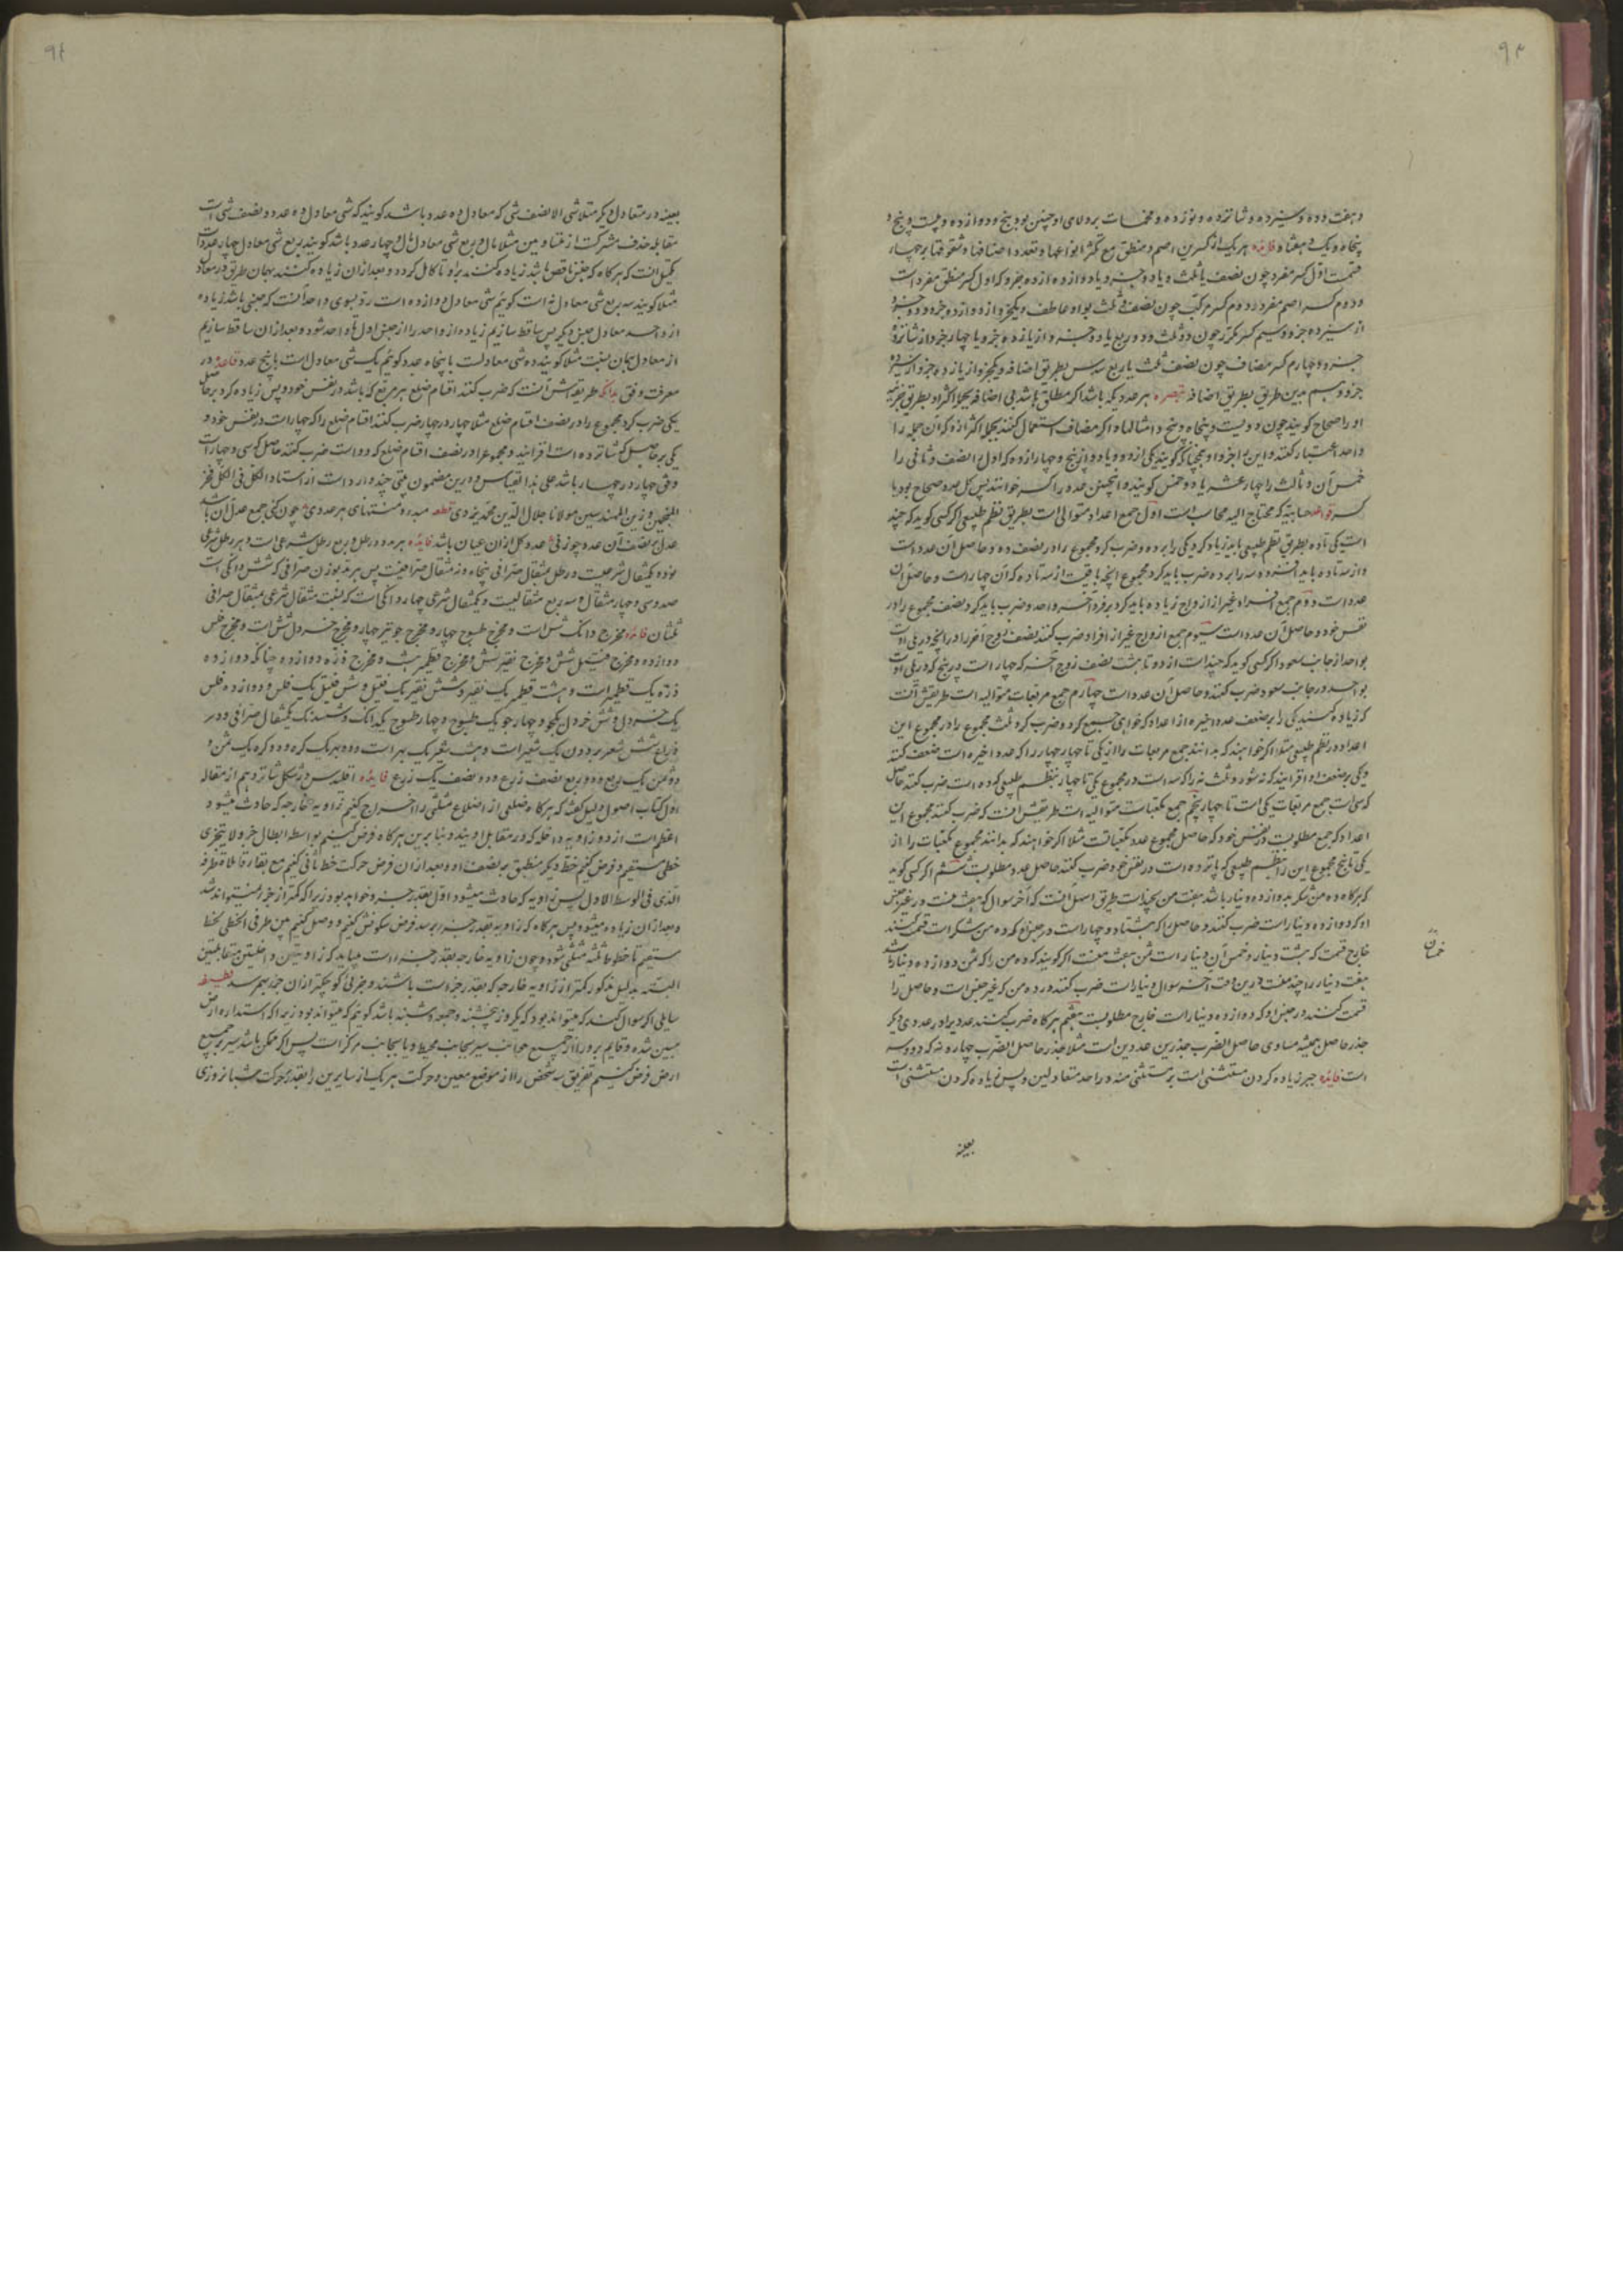 ۹۳
و هفت و ده و سیزده و شانزده و نوزده و مخمسات بر ولای او چنین بود پنج و دوازده و بیست و پنج و
پنجاه و یک و هفتاد فائده هر یک از کسرین اصم و منطق مع تکثر انواعها و تعدد اصنافها و تفوقها بر چهار
قسمت اول کسر مفرد چون نصف یا ثلث و یا دو جزو و یا دوازده از ده جزو که اول کسر منطق مفرد است
و دوم کسر اصم مفرد دوم کسر مرکب چون نصف و ثلث بواو عاطف و یکجزو از دوازده جزو و دو جزو
از سیزده جزو و سیم کسر مکرر چون دو ثلث و دو ربع یا دو جزو از یازده جزو یا چهار جزو از شانزده
جزو و چهارم کسر مضاف چون نصف ثلث یا ربع سدس بطریق اضافه و یکجزو از یازده جزو از سیزده
جزو و قسم بدین طریق بطریق اضافه تبصره هر عدد یکه باشد اگر مطلق باشد بی اضافه بجمله اکثر او بطریق تجزیه
او را صحاح گویند چون دویست و پنجاه و پنج و امثالها و اگر مضاف استعمال کنند بجمله اکثر از ده که آن جمله را
واحد اعتبار کنند و این بواجزو او همچنانکه گویند یکی از دو و یا دو از پنج و چهار از ده که اول را نصف و ثانی را
خمس آن و ثالث را چهار عشر یا دو خمس گویند و اینچنین عدد را کسر خوانند پس کل عدد صحاح بود یا
کسر قواعد حسابیه که محتاج الیه محاسب است اول جمع اعداد متوالی است بطریق نظم طبیعی اگر کسی گوید که چند
است یکی تا ده بطریق نظم طبیعی باید زیاد کرد یکی را بر ده و ضرب کرد مجموع را در نصف ده و حاصل آن عدد است
و از سه تا ده باید افزود سه را بر ده ضرب باید کرد مجموع آنچه باقیست از سه تا ده که آن چهار است و حاصل آن
عدد است دوم جمع افراد غیر از ازواج زیاده باید کرد بر فرد اخر واحد و ضرب باید کرد نصف مجموع را در
نفس خود و حاصل آن عدد است سیوم جمع ازواج غیر از افراد ضرب کنند نصف زوج آخر را در آنچه در یلی اوست
بواحد از جانب صعود اگر کسی گوید که چند است از دو تا هشت نصف زوج آخر که چهار است در پنج که در یلی اوست
بواحد در جانب صعود ضرب کنند و حاصل آن عدد است چهارم جمع مربعات متوالیه است طریقش آنست
که زیاده کنند یکی را بر ضعف عدد اخیره از اعداد که خواهی جمع کرد و ضرب کرد ثلث مجموع را در مجموع این
اعداد در نظم طبیعی مثلا اگر خواهند که بدانند جمع مربعات را از یکی تا چهار چهار را که عدد اخیره است ضعف کنند
و یکی بر ضعف او افزایند که نه شود و ثلث نه را که سه است در مجموع یکی تا چهار بنظم طبیعی که ده است ضرب کنند حاصل
که سی است جمع مربعات یکی است تا چهار پنجم جمع مکعبات متوالیه است طریقش آنست که ضرب کنند مجموع این
اعداد که جمع مطلوبست در نفس خود که حاصل مجموع عدد مکعباتست مثلا اگر خواهند که بدانند مجموع مکعبات را از
یکی تا پنج مجموع این را بنظم طبیعی که پانزده است در نفس خود ضرب کنند حاصل عدد مطلوبست ششم اگر کسی گوید
که هرگاه ده من شکر بدوازده دینار باشد هفت من بچند است طریق اسهل آنست که آخر سوال که هفتست در غیر جنس
او که دوازده دینار است ضرب کنند و حاصل را که هشتاد و چهار است در جنس او که ده من شکر است قسمت کنند
خارج قسمت که هشت دینار و خمس آن دینار است ثمن هفت منست اگر گویند که ده من را که ثمن دوازده دینار باشد
هفت دینار را چند منست درین وقت آخر سوال دینار است ضرب کنند در ده من که غیر جنس است و حاصل را
قسمت کنند در جنس او که دوازده دینار است خارج مطلوبست هفتم هرگاه ضرب کنند عددیرا در عددی دیگر
جذر حاصل همیشه مساوی حاصل الضرب جذرین عددین است مثلا جذر حاصل الضرب چهار و نه که دو و سه
است فائده جبر زیاده کردن مستثنی است بر مستثنی منه در احد متعادلین و پس زیاده کردن مستثنی است
خمسان
بعینه
۹۴
بعینه در متعادل دیگر مثلا شی الا نصف شی که معادل ده عدد باشد گویند که شی معادل ده عدد و نصف شی است
مقابله حذف مشترکست از متعادلین مثلا مال و ربع شی معادل مال و چهار عدد باشد گویند ربع شی معادل چهار عدد است
تکمیل آنست که هرگاه که جنس ناقص باشد زیاده کنند بدو تا کامل گردد و بعد از آن زیاده کنند بهمان طریق در معادل
مثلا گویند سه ربع شی معادل نه است گوئیم شی معادل دوازده است رد بسوی واحد آنست که جنسی باشد زیاده
از واحد معادل جنس دیگر پس ساقط سازیم زیاده از واحد را از جنس اول تا واحد شود و بعد از آن ساقط سازیم
از معادل بهمان نسبت مثلا گویند ده شی معادلست با پنجاه عدد گوئیم یک شی معادل است با پنج عدد قاعده در
معرفت وفق بدانکه طریقه اش آنست که ضرب کنند اقسام ضلع هر مربع که باشد در نفس خود و پس زیاده کرد بر حاصل
یکی ضرب کرد مجموع را در نصف اقسام ضلع مثلا چهار در چهار ضرب کنند اقسام ضلع را که چهار است در نفس خود و
یکی بر حاصل که شانزده است افزایند و مجموع را در نصف اقسام ضلع که دو است ضرب کنند حاصل که سی و چهار است
وفق چهار در چهار باشد علی هذا القیاس و درین مضمون بیتی چند وارد است از استاد الکل فی الکل فخر
المنجمین و زین المهندسین مولانا جلال الدین محمد یزدی قطعه مبدء و منتهای هر عددی چون کنی جمع عدل آن باشد
عدل بر نصف آن عدد چو زنی عدد کل از آن عیان باشد فائده هر مد دو رطل و ربع رطل شرعی است و هر رطل شرقی
ثلثان فائده مخرج دانگ شش است و مخرج طسوج چهار و مخرج جو نیز چهار و مخرج خردل شش است و مخرج فلس
دوازده و مخرج فتیل شش و مخرج نقیر شش و مخرج قطمیر هشت و مخرج ذره دوازده چنانکه دوازده
ذره یک قطمیر است و هشت قطمیر یک نقیر و شش نقیر یک فتیل و شش فتیل یک فلس و دوازده فلس
یک خردل و شش خردل یکجو و چهار جو یک طسوج و چهار طسوج یکدانگ و شش دانگ یکمثقال صرافی و در
اول کتاب اصول دلیل گفته که هرگاه ضلعی از اضلاع مثلثی را اخراج کنیم زاویه خارجه که حادث میشود
اعظم است از دو زاویه داخله که در مقابل او بیند و بنا برین هرگاه فرض کنیم بواسطه ابطال جزو لا یتجزی
خطی مستقیم و فرض کنیم خط دیگر منطبق بر نصف او و بعد از آن فرض حرکت خط ثانی کنیم مع بقاء تلاقی طرفه
الذی فی الوسط الاول پس زاویه که حادث میشود اول بقدر جزو خواهد بود زیرا که کمتر از جزو نمیتواند شد
و بعد از آن زیاده میشود پس هرگاه که زاویه بقدر جزو برسد فرض سکونش کنیم و وصل کنیم بین طرفی الخطی بخط
مستقیم تا خط ثالثه مثلثی شود و چون زاویه خارجه بقدر جزو است میباید که زاویتین داخلتین متقابلتین
البته بدلیل مذکور کمتر از زاویه خارجه که بقدر جزو است باشند و جزئی کوچکتر از آن جزو بهم رسد لطیفه
سایلی اگر سوال کند که میتواند بود که یکروز پنجشنبه و جمعه و شنبه باشد گوئیم که میتواند بود زیرا که استداره ارض
مبین شده و قایم بر و را از جمیع جوانب سیر بجانب محیط و یا بجانب مرکز است پس اگر ممکن باشد سیر بر جمیع
ارض فرض کنیم تفریق سه شخص را از موضع معین و حرکت هر یک از سایرین را بقدر حرکت شبانروزی